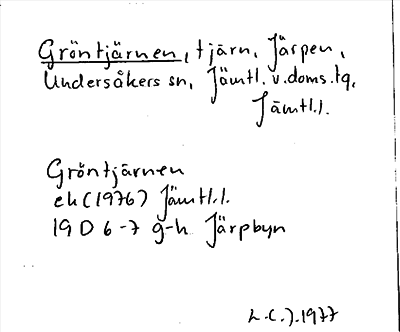 Gröntjärnen, tjärn, Järpen,
Undersåkers sn, Jämtl. v. doms. tg,
Jämtl.l.
Gröntjärnen
ek (1976) Jämtl.l.
19 D 6-7 g-h Järpbyn
1977